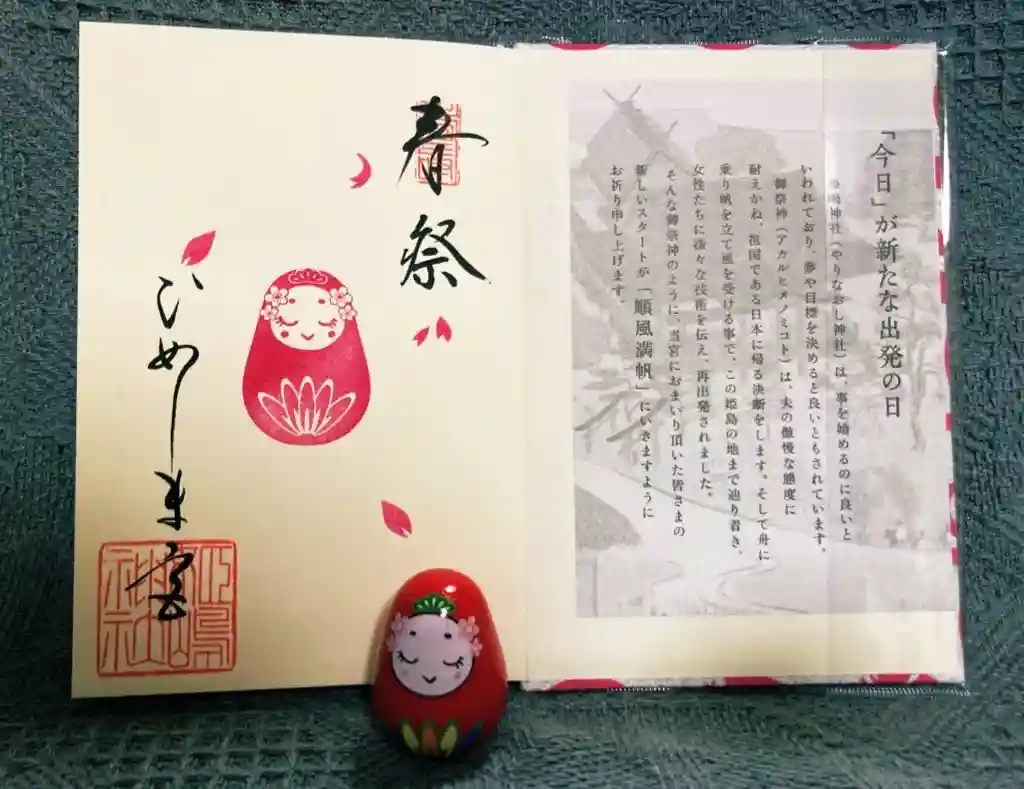 「今日」が新たな出発の日
姫嶋神社（やりなおし神社）は、事を始めるのに良いと
いわれており、夢や目標を決めると良いともされています。
御祭神（アカルヒメノミコト）は、夫の傲慢な態度に
耐えかね、祖国である日本に帰る決断をします。そして舟に
乗り帆を立て風を受ける事で、この姫島の地まで辿り着き、
女性たちに様々な技術を伝え、再出発されました。
そんな御祭神のように、当宮におまいり頂いた皆さまの
新しいスタートが「順風満帆」にいきますように
お祈り申し上げます。
春祭
ひめしま宮